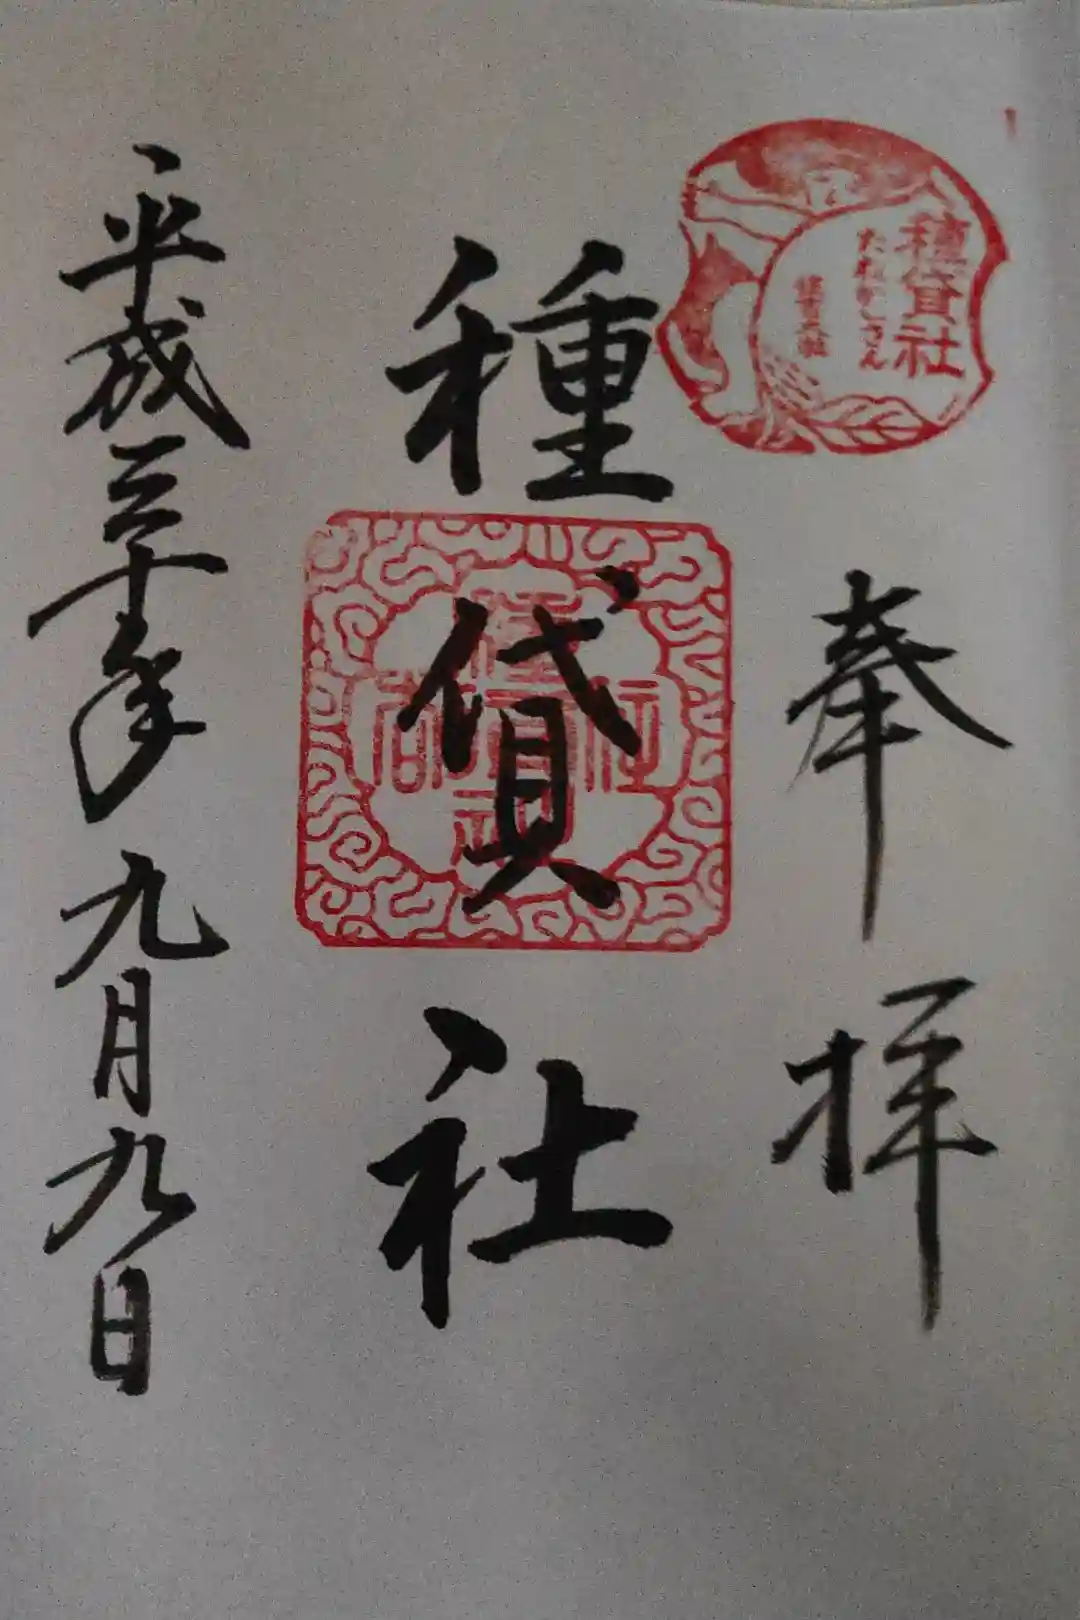 種貸社
たねかしさん
奉拝
種貸社
平成三十年九月九日